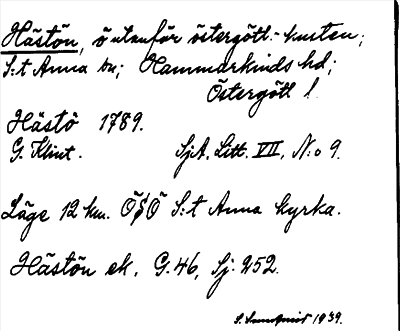 Hästön, ö utanför östergötl.-kusten;
S:t Anna sn; Hammarkinds hd;
Östergötl l.
Hästö 1789.
G. Klint. SjA. Litt. VII, N:o 9.
Läge 12 km. ÖSÖ S:t Anna kyrka.
Hästön ek. G. 46, Sj. 252.
S. Lundqvist 1939.